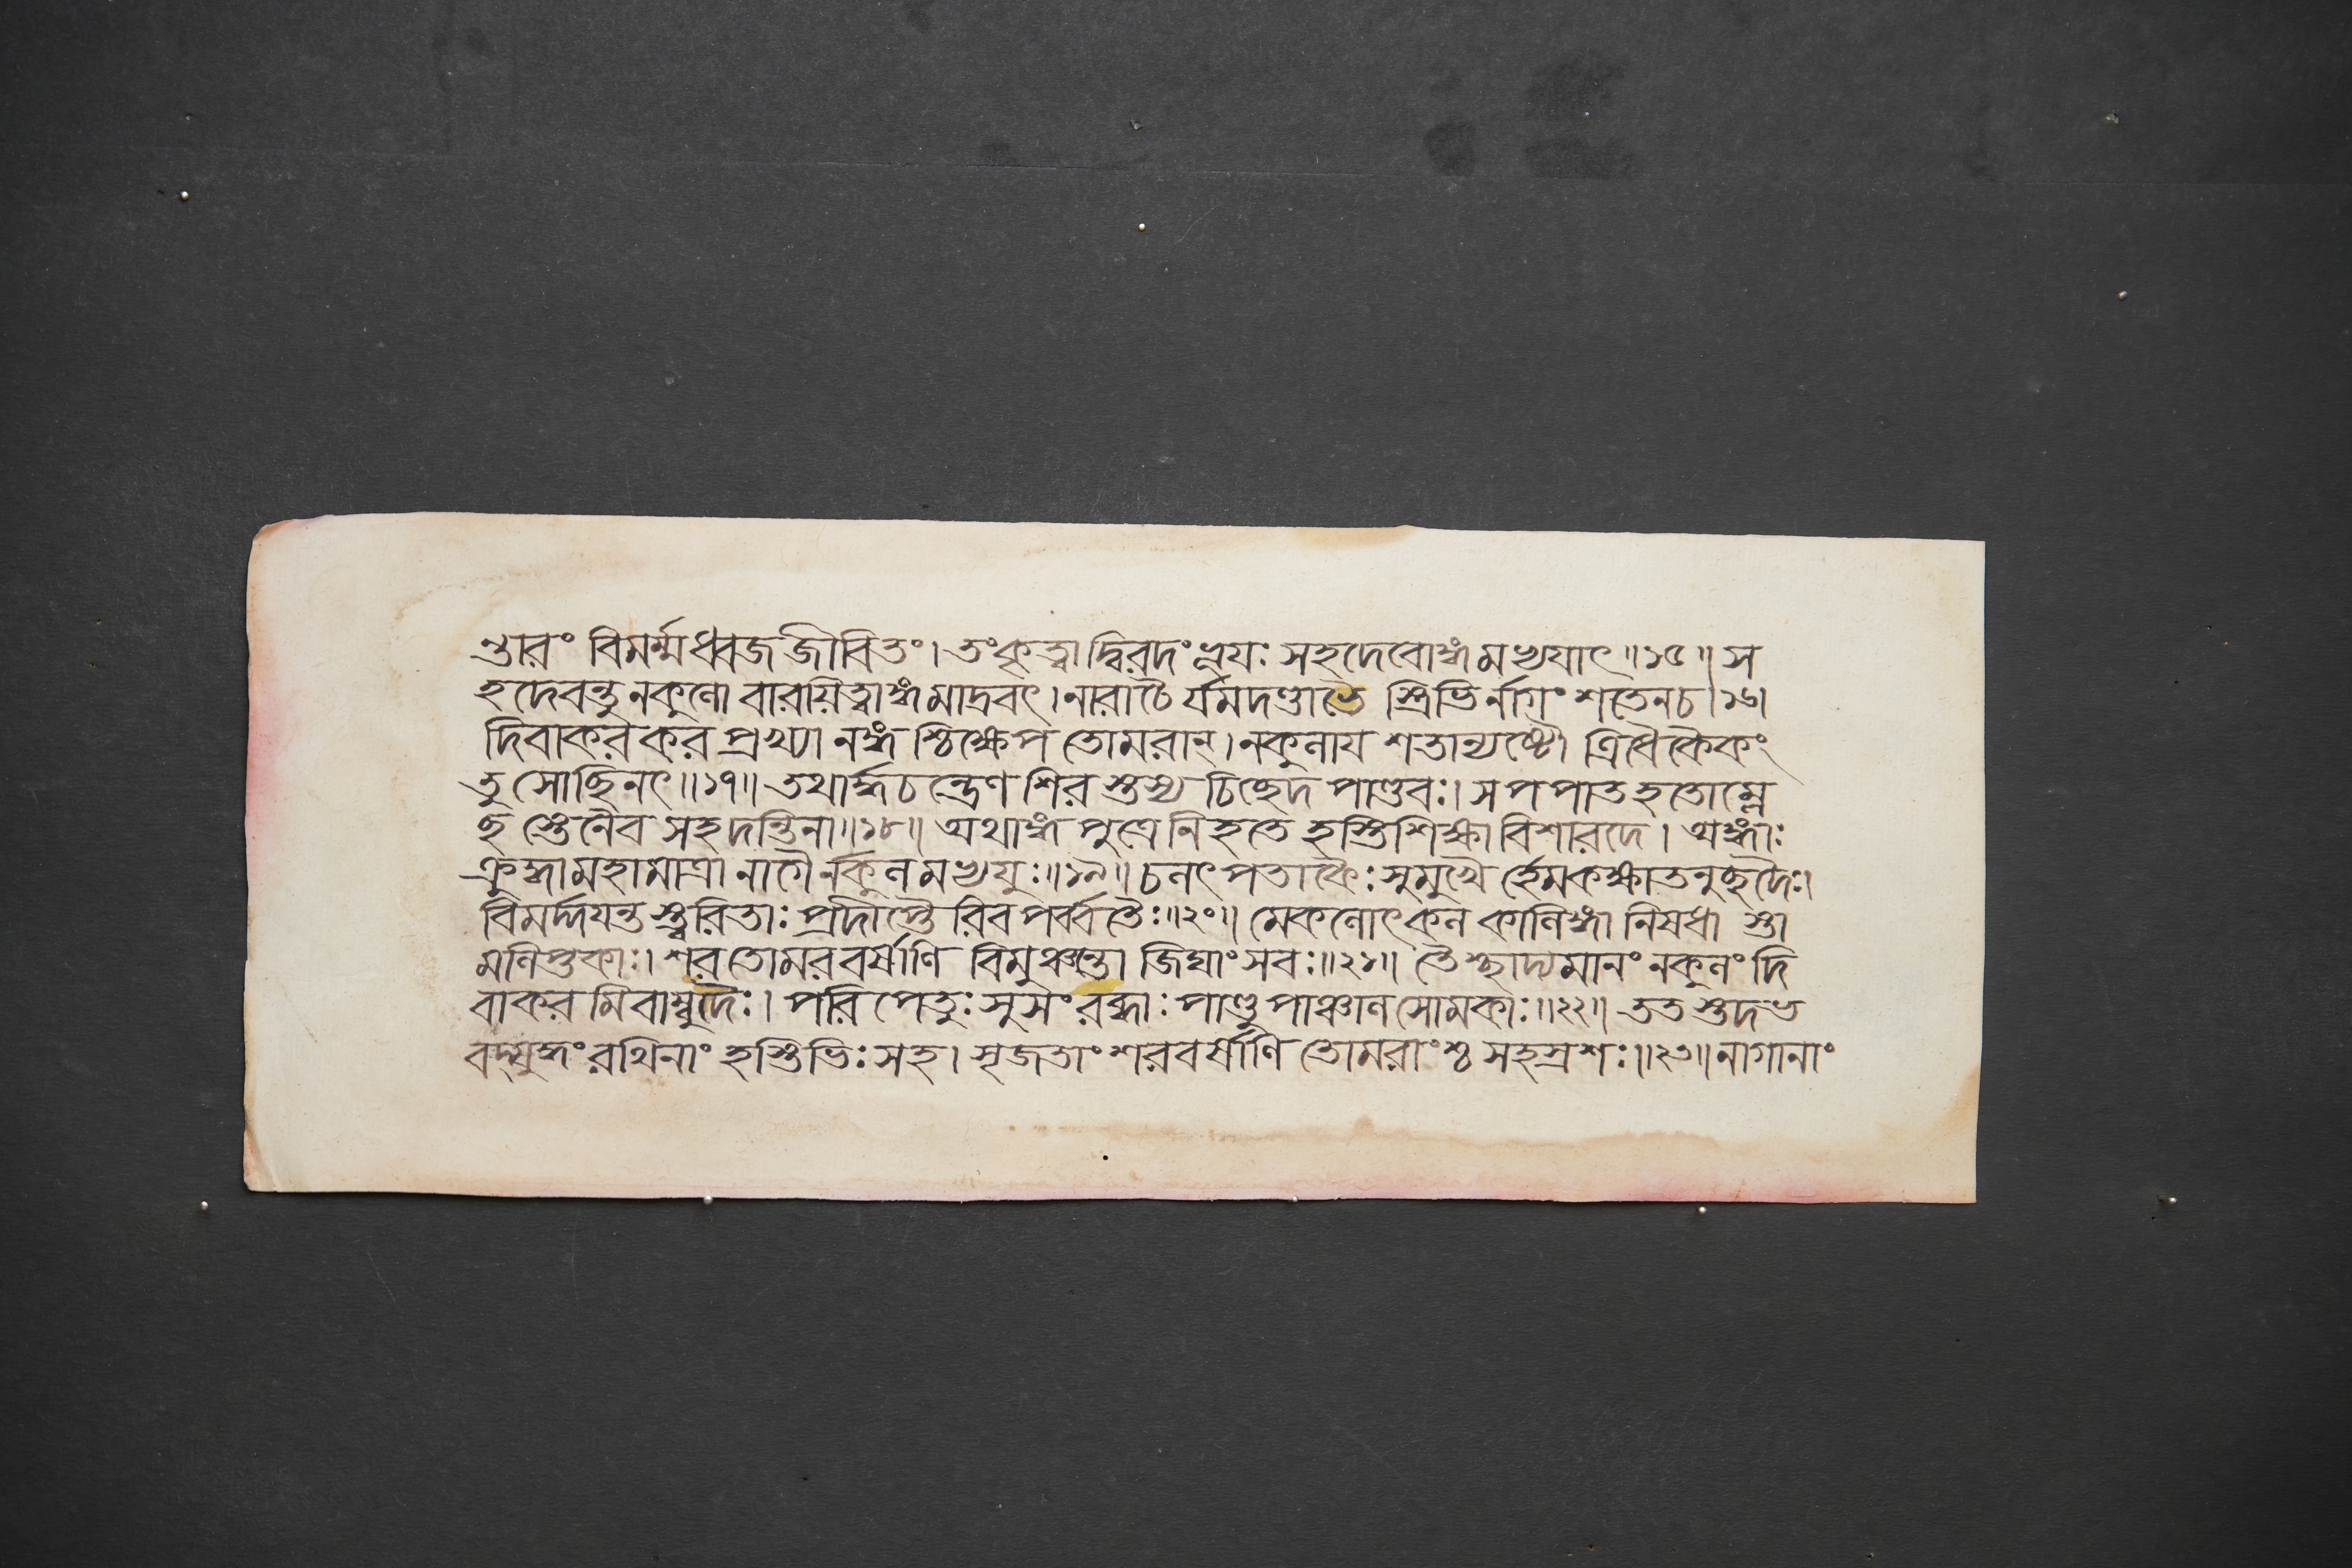 ণ্ডারং বিমর্ম্মধ্বজজীবিতং। তংকৃত্বাদ্বিরদংভূয়ঃ সহদেবোঙ্গমভ্যযাৎ॥১৫॥ স
হদেবন্তুনকুলো বারয়িত্বাঙ্গমাদ্রবৎ। নারাচৈর্যমদণ্ডাভৈ স্ত্রিভির্নাগং শতেনচ।১৬।
দিবাকরকর প্রখ্যা নঙ্গ শ্চিক্ষেপ তোমরান্। নকুলায শতান্যষ্টৌ ত্রিধৈকৈকং
তু সোছিনৎ॥১৭॥ তথার্দ্ধচন্দ্রেণ শির স্তস্য চিছেদ পাণ্ডবঃ। স পপাত হতোম্লে
ছ স্তেনৈব সহদন্তিনা॥১৮॥ অথাঙ্গ পুত্রে নিহতে হস্তিশিক্ষা বিশারদে। অঙ্গাঃ
ক্রুদ্ধামহামাত্রা নাগৈর্নকুলমভ্যযুঃ॥১৯॥ চলৎ পতাকৈঃ সুমুখৈ র্হেমকক্ষাতনুছদৈঃ।
বিমর্দ্দযন্ত স্ত্বরিতাঃ প্রদীপ্তৈ রিব পর্ব্বতৈঃ॥২০॥ মেকলোৎকল কালিঙ্গা নিষধা স্তা
মলিপ্তকাঃ। শরতোমরবর্ষাণি বিমুঞ্চন্তো জিঘাংসবঃ॥২১॥ তৈশ্ছাদ্যমানং নকুলং দি
বাকর মিবাম্বুদৈঃ। পরি পেতুঃ সুসংরব্ধাঃ পাণ্ডু পাঞ্চাল সোমকাঃ॥২২॥ ততস্তদভ
বদ্যুদ্ধং রথিনাং হস্তিভিঃ সহ। সৃজতাং শরবর্ষাণি তোমরাংশ্চ সহস্রশঃ॥২৩॥ নাগানাং